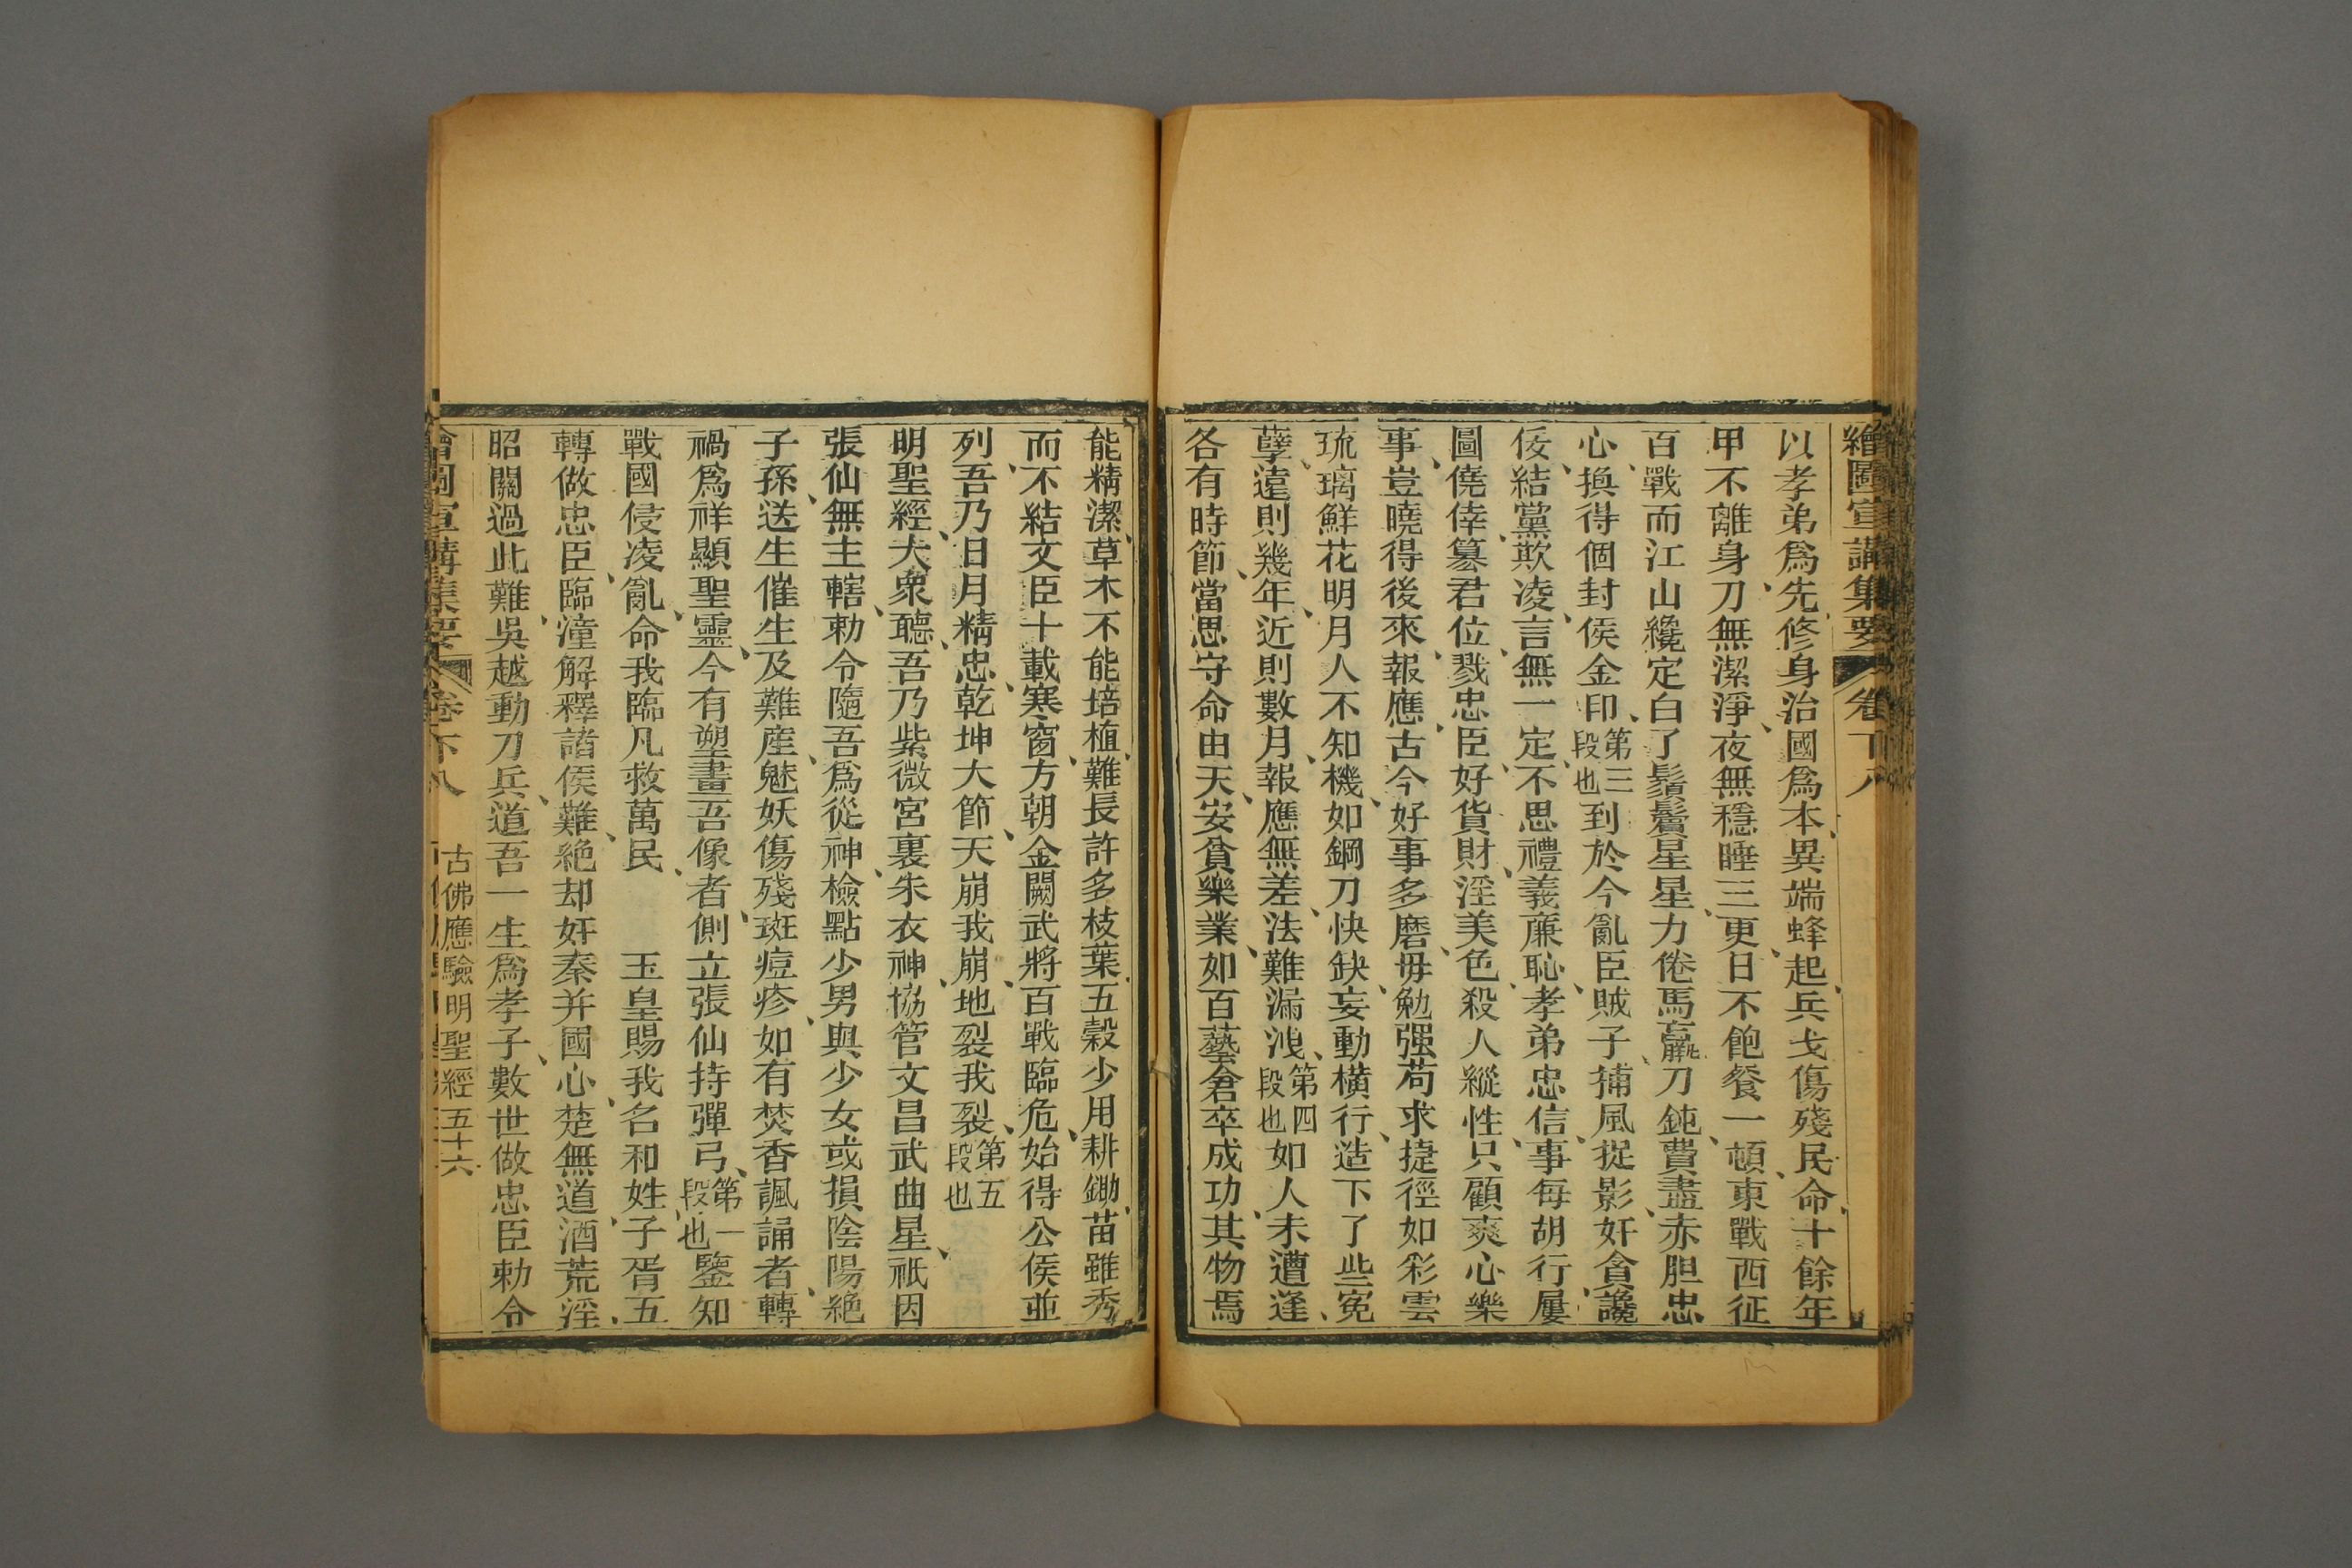 繪圖宣講集要 卷下八
以孝弟爲先修身治國爲本異端蜂起兵戈傷殘民命十餘年
甲不離身刀無潔淨夜無穩睡三更日不飽餐一頓東戰西征
百戰而江山纔定白了鬚鬢星星力倦馬羸刀鈍費盡赤胆忠
心換得個封侯金印第三段也到於今亂臣賊子捕風捉影奸貪讒
佞結黨欺凌言無一定不思禮義廉恥孝弟忠信事每胡行屢
圖僥倖篡君位戮忠臣好貨財淫美色殺人縱性只顧爽心樂
事豈曉得後來報應古今好事多磨毋勉强苟求捷徑如彩雲
琉璃鮮花明月人不知機如鋼刀快缺妄動橫行造下了些寃
孽遠則幾年近則數月報應無差法難漏洩第四段也如人未遭逢
各有時節當思守命由天安貧樂業如百藝倉卒成功其物焉
能精潔草木不能培植難長許多枝葉五穀少用耕鋤苗雖秀
而不結文臣十載寒窗方朝金闕武將百戰臨危始得公侯並
列吾乃日月精忠乾坤大節天崩我崩地裂我裂第五段也
明聖經大衆聽吾乃紫微宮裏朱衣神協管文昌武曲星祇因
張仙無主轄勅令隨吾爲從神檢點少男與少女或損陰陽絶
子孫送生催生及難產魅妖傷殘斑痘疹如有焚香諷誦者轉
禍爲祥顯聖靈今有塑畫吾像者側立張仙持彈弓第一段也鑒知
戰國侵凌亂命我臨凡救萬民 玉皇賜我名和姓子胥五
轉做忠臣臨潼解釋諸侯難絶却奸秦并國心楚無道酒荒淫
昭關過此難吳越動刀兵道吾一生爲孝子數世做忠臣勅令
繪圖宣講集要 卷下八 古佛應驗明聖經 五十六